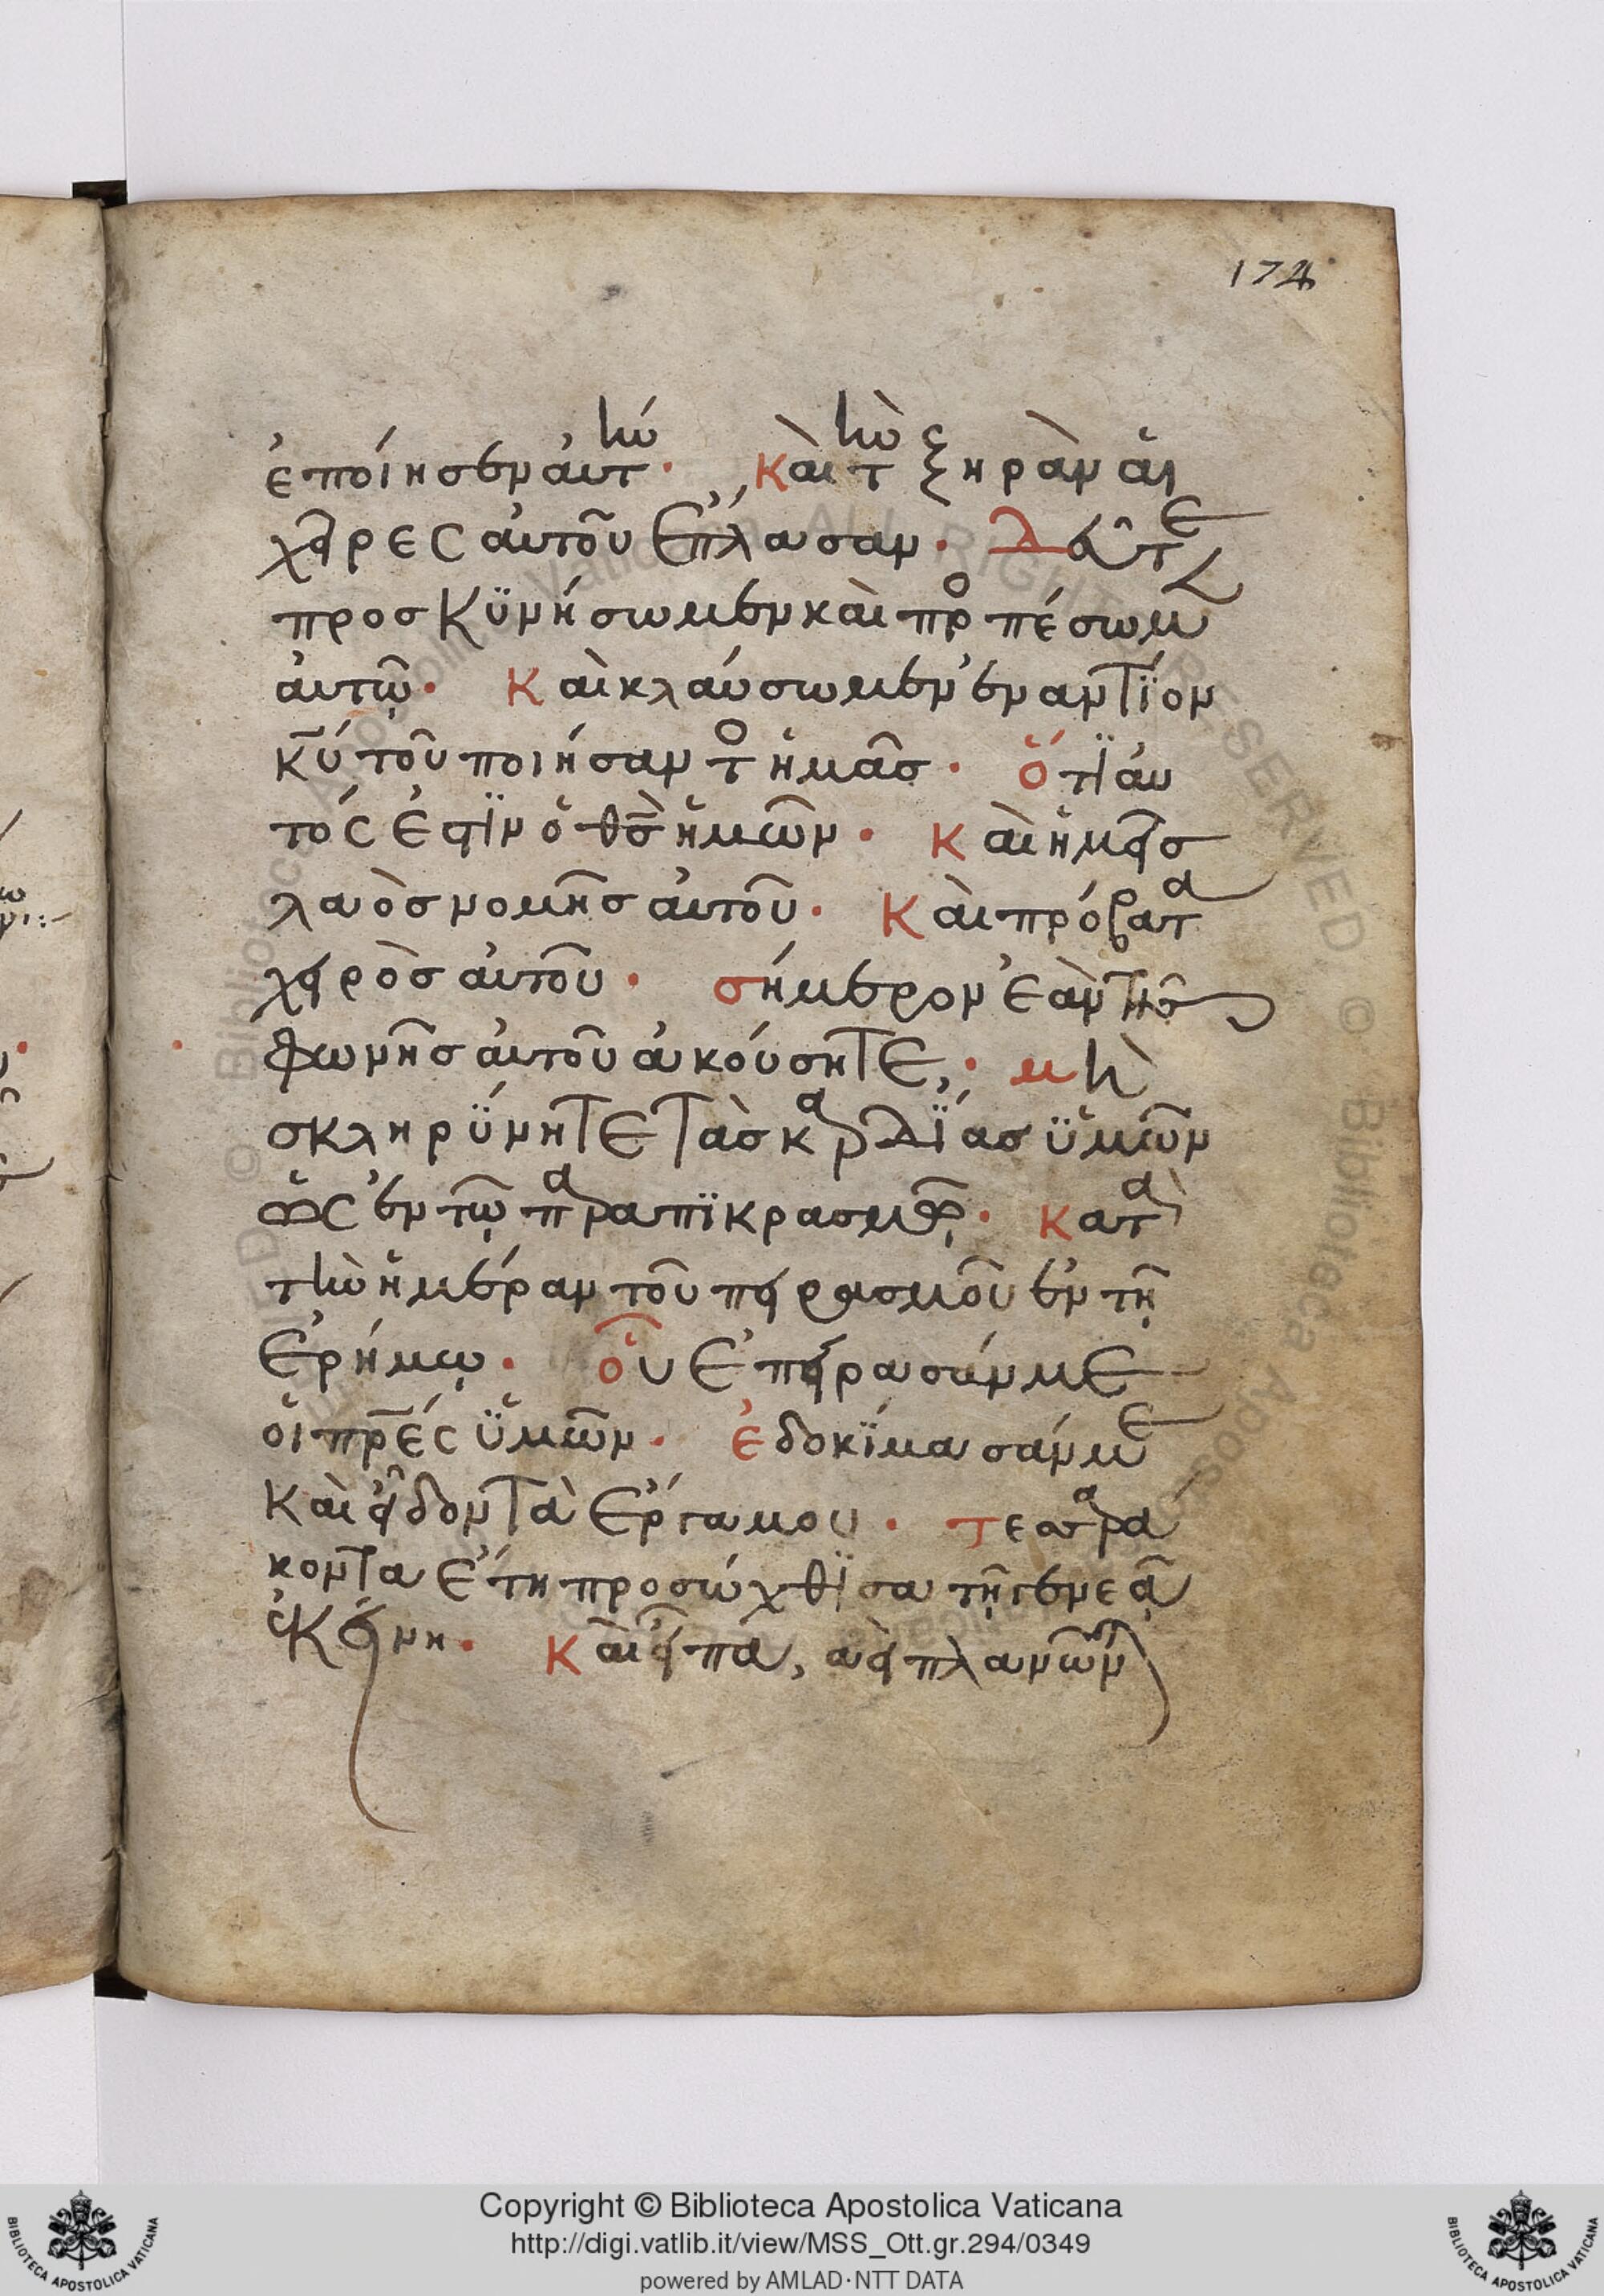 174
ἐποίησεν αὐτήν· Καὶ τὴν ξηρὰν αἱ
χεῖρες αὐτοῦ ἔπλασαν· Δεῦτε
προσκϋνήσωμεν καὶ προπέσωμεν
αὐτῶ· Καὶ κλαύσωμεν ἐναντΐον
κυ τοῦ ποιήσαντος ἡμᾶσ· ὅτϊ αὐ
τός ἐστϊν ὁ θσ ἡμῶν· Καὶ ἡμεῖσ
λαὸσ νομῆσ αὐτοῦ· Καὶ πρόβατα
χειρὸσ αὐτοῦ· σήμερον ἐὰν τῆσ
φωνῆσ αὐτοῦ ἀκούσητε, · μὴ
σκληρϋνητε τὰσ καρδΐασ ϋμῶν
ὡς ἐν τῶ παραπϊκρασμῶ· Κατὰ
τὴν ἡμέραν τοῦ πειρασμοῦ ἐν τῆ
ἐρήμω· οὗ ἐπείρασάν με
οἱ πρες ϋμῶν· ἐδοκΐμασάν με
Καὶ εἶδον τὰ ἔργα μου· τεσσαρά
κοντα ἔτη προσώχθϊσα τῆ γενεᾶ
ἐκείνη· Καὶ εἶπα, ἀεὶ πλανῶνται
Copyright © Biblioteca Apostolica Vaticana
http://digi.vatlib.it/view/MSS_Ott.gr.294/0349
powered by AMLAD·NTT DATA